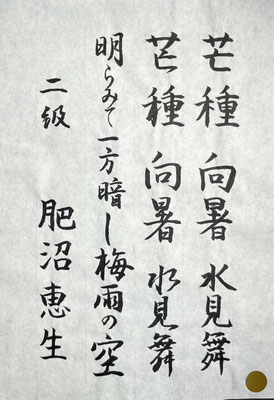 芒種 向暑 水見舞
芒種 向暑 水見舞
明らみて一方暗し梅雨の空
二級 肥沼恵生